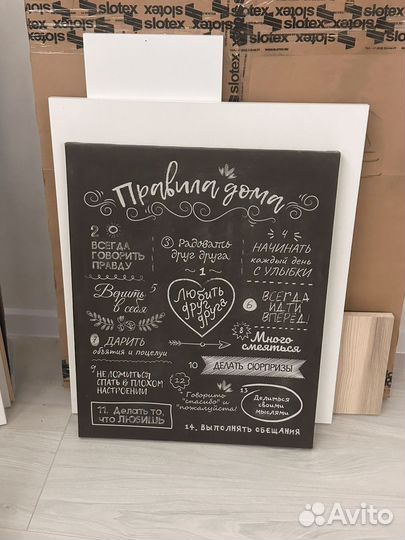 slotex
slotex
slotex
slotex
slotex
Правила дома
2
ВСЕГДА
ГОВОРИТЬ
ПРАВДУ
3 Радовать
друг друга
4
НАЧИНАТЬ
каждый день
С УЛЫБКИ
1
ЛЮБИТЬ
друг
друга
Верить 5
в себя
6 ВСЕГДА
ИДТИ
ВПЕРЕД!
7 ДАРИТЬ
объятия и поцелуи
8 Много
смеяться
9 НЕ ЛОЖИТЬСЯ
СПАТЬ В ПЛОХОМ
НАСТРОЕНИИ
10 ДЕЛАТЬ СЮРПРИЗЫ
11. Делать то,
что ЛЮБИШЬ
12
Говорить
"спасибо" и
"пожалуйста!"
13
Делиться
своими
мыслями
14. ВЫПОЛНЯТЬ ОБЕЩАНИЯ
Avito